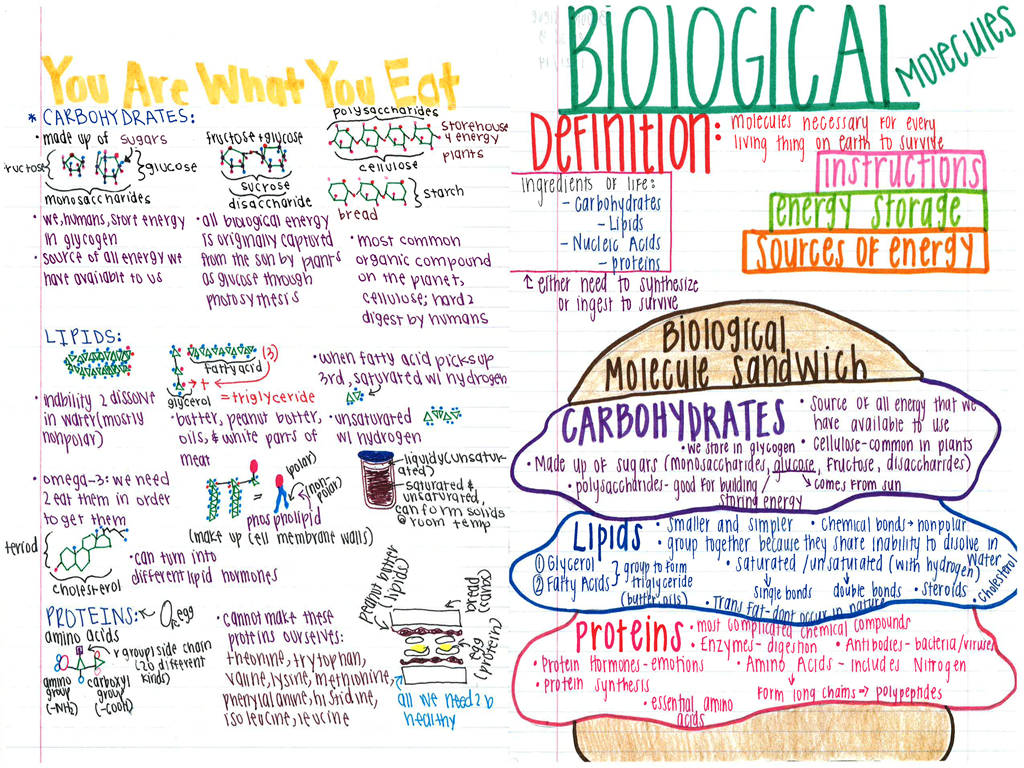 You Are What You Eat
* CARBOHYDRATES:
• made up of sugars
fructose
glucose
monosaccharides
fructose + glucose
sucrose
disaccharide
polysaccharides
storehouse
4 energy
plants
cellulose
starch
bread
• we, humans, store energy
in glycogen
• source of all energy we
have available to us
• all biological energy
is originally captured
from the sun by plants
as glucose through
photosythesis
• most common
organic compound
on the planet,
cellulose; hard 2
digest by humans
LIPIDS:
fatty acid
(3)
+
glycerol
= triglyceride
• when fatty acid picks up
3rd, saturated w/ hydrogen
• inability 2 dissolve
in water (mostly
nonpolar)
• butter, peanut butter,
oils, & white parts of
meat
• unsaturated
w/ hydrogen
• omega-3: we need
2 eat them in order
to get them
=
(polar)
(non-
polar)
phospholipid
(make up cell membrane walls)
liquidy (unsatur-
ated)
saturated &
unsaturated,
can form solids
@ room temp
steriod
cholesterol
• can turn into
different lipid hormones
PROTEINS:
egg
amino acids
r group/side chain
(20 different
kinds)
amino
group
(-NH2)
carboxyl
group
(-COOH)
• cannot make these
proteins ourselves:
theonine, trytophan,
valine, lysine, methionine,
phenylalanine, histidine,
isoleucine, leucine
peanut butter
(lipids)
bread
(carbs)
egg
(protein)
all we need 2 b
healthy
BIOLOGICAL
MOLECULES
Definition:
molecules necessary for every
living thing on earth to survive
instructions
energy storage
sources of energy
ingredients of life:
- Carbohydrates
- Lipids
- Nucleic Acids
- proteins
↑ either need to synthesize
or ingest to survive
Biological
Molecule Sandwich
CARBOHYDRATES
• Source of all energy that we
have available to use
• we store in glycogen
• cellulose-common in plants
• Made up of sugars (monosaccharides, glucose, fructose, disaccharides)
• polysaccharides- good for building
storing energy
comes from sun
Lipids
• Smaller and simpler
• chemical bonds → nonpolar
• group together because they share inability to disolve in
water
① Glycerol
② Fatty Acids
group to form
triglyceride
(butter, oils)
• saturated /unsaturated (with hydrogen)
single bonds
double bonds
• Steroids
• cholesterol
• Trans Fat- dont occur in nature
Proteins
• most complicated chemical compounds
• Enzymes- digestion
• Antibodies- bacteria/viruses
• Protein Hormones- emotions
• Amino Acids - includes Nitrogen
• protein synthesis
form long chains → polypeptides
• essential amino
acids